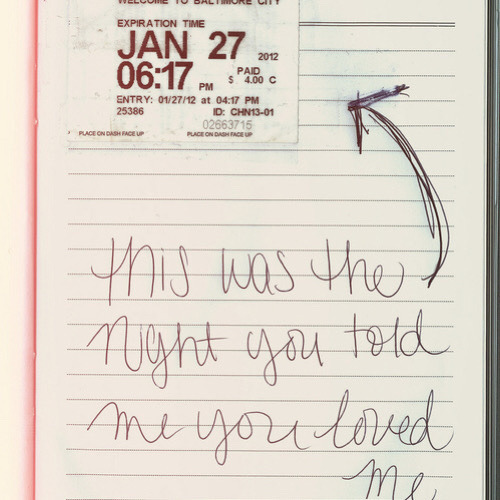 WELCOME TO BALTIMORE CITY
EXPIRATION TIME
JAN 27 2012
06:17 PM PAID
$ 4.00 C
ENTRY: 01/27/12 at 04:17 PM
25386 ID: CHN13-01
02663715
PLACE ON DASH FACE UP PLACE ON DASH FACE UP
this was the
night you told
me you loved
me